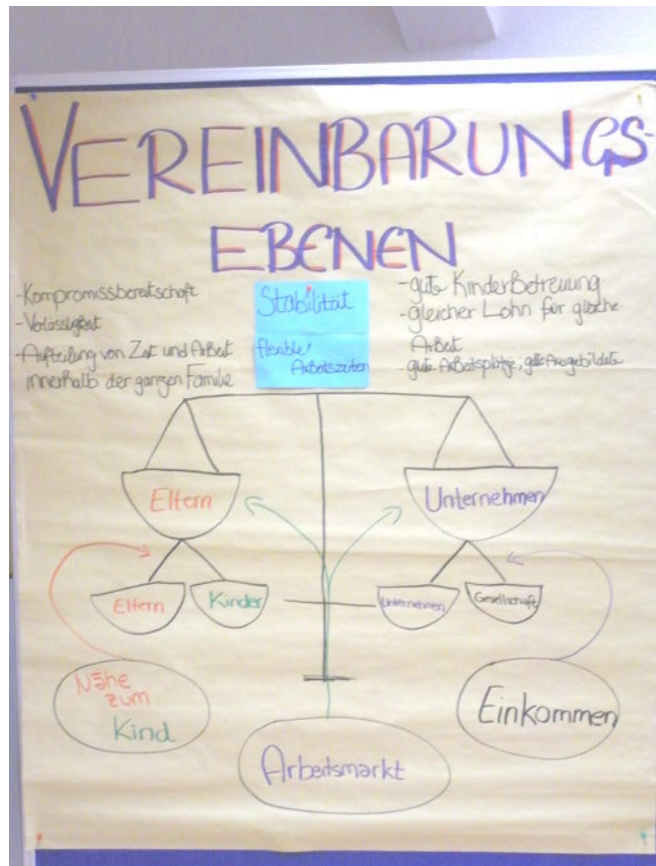 VEREINBARUNGS-
EBENEN
-Kompromissbereitschaft
-Verlässigkeit
-Aufteilung von Zeit und Arbeit
innerhalb der ganzen Familie
Stabilität
flexible
Arbeitszeiten
-gute KinderBetreuung
-gleicher Lohn für gleiche
Arbeit
-gute Arbeitsplätze; gute Ausgebildete
Eltern
Unternehmen
Eltern
Kinder
Unternehmen
Gesellschaft
Nähe
zum
Kind
Einkommen
Arbeitsmarkt